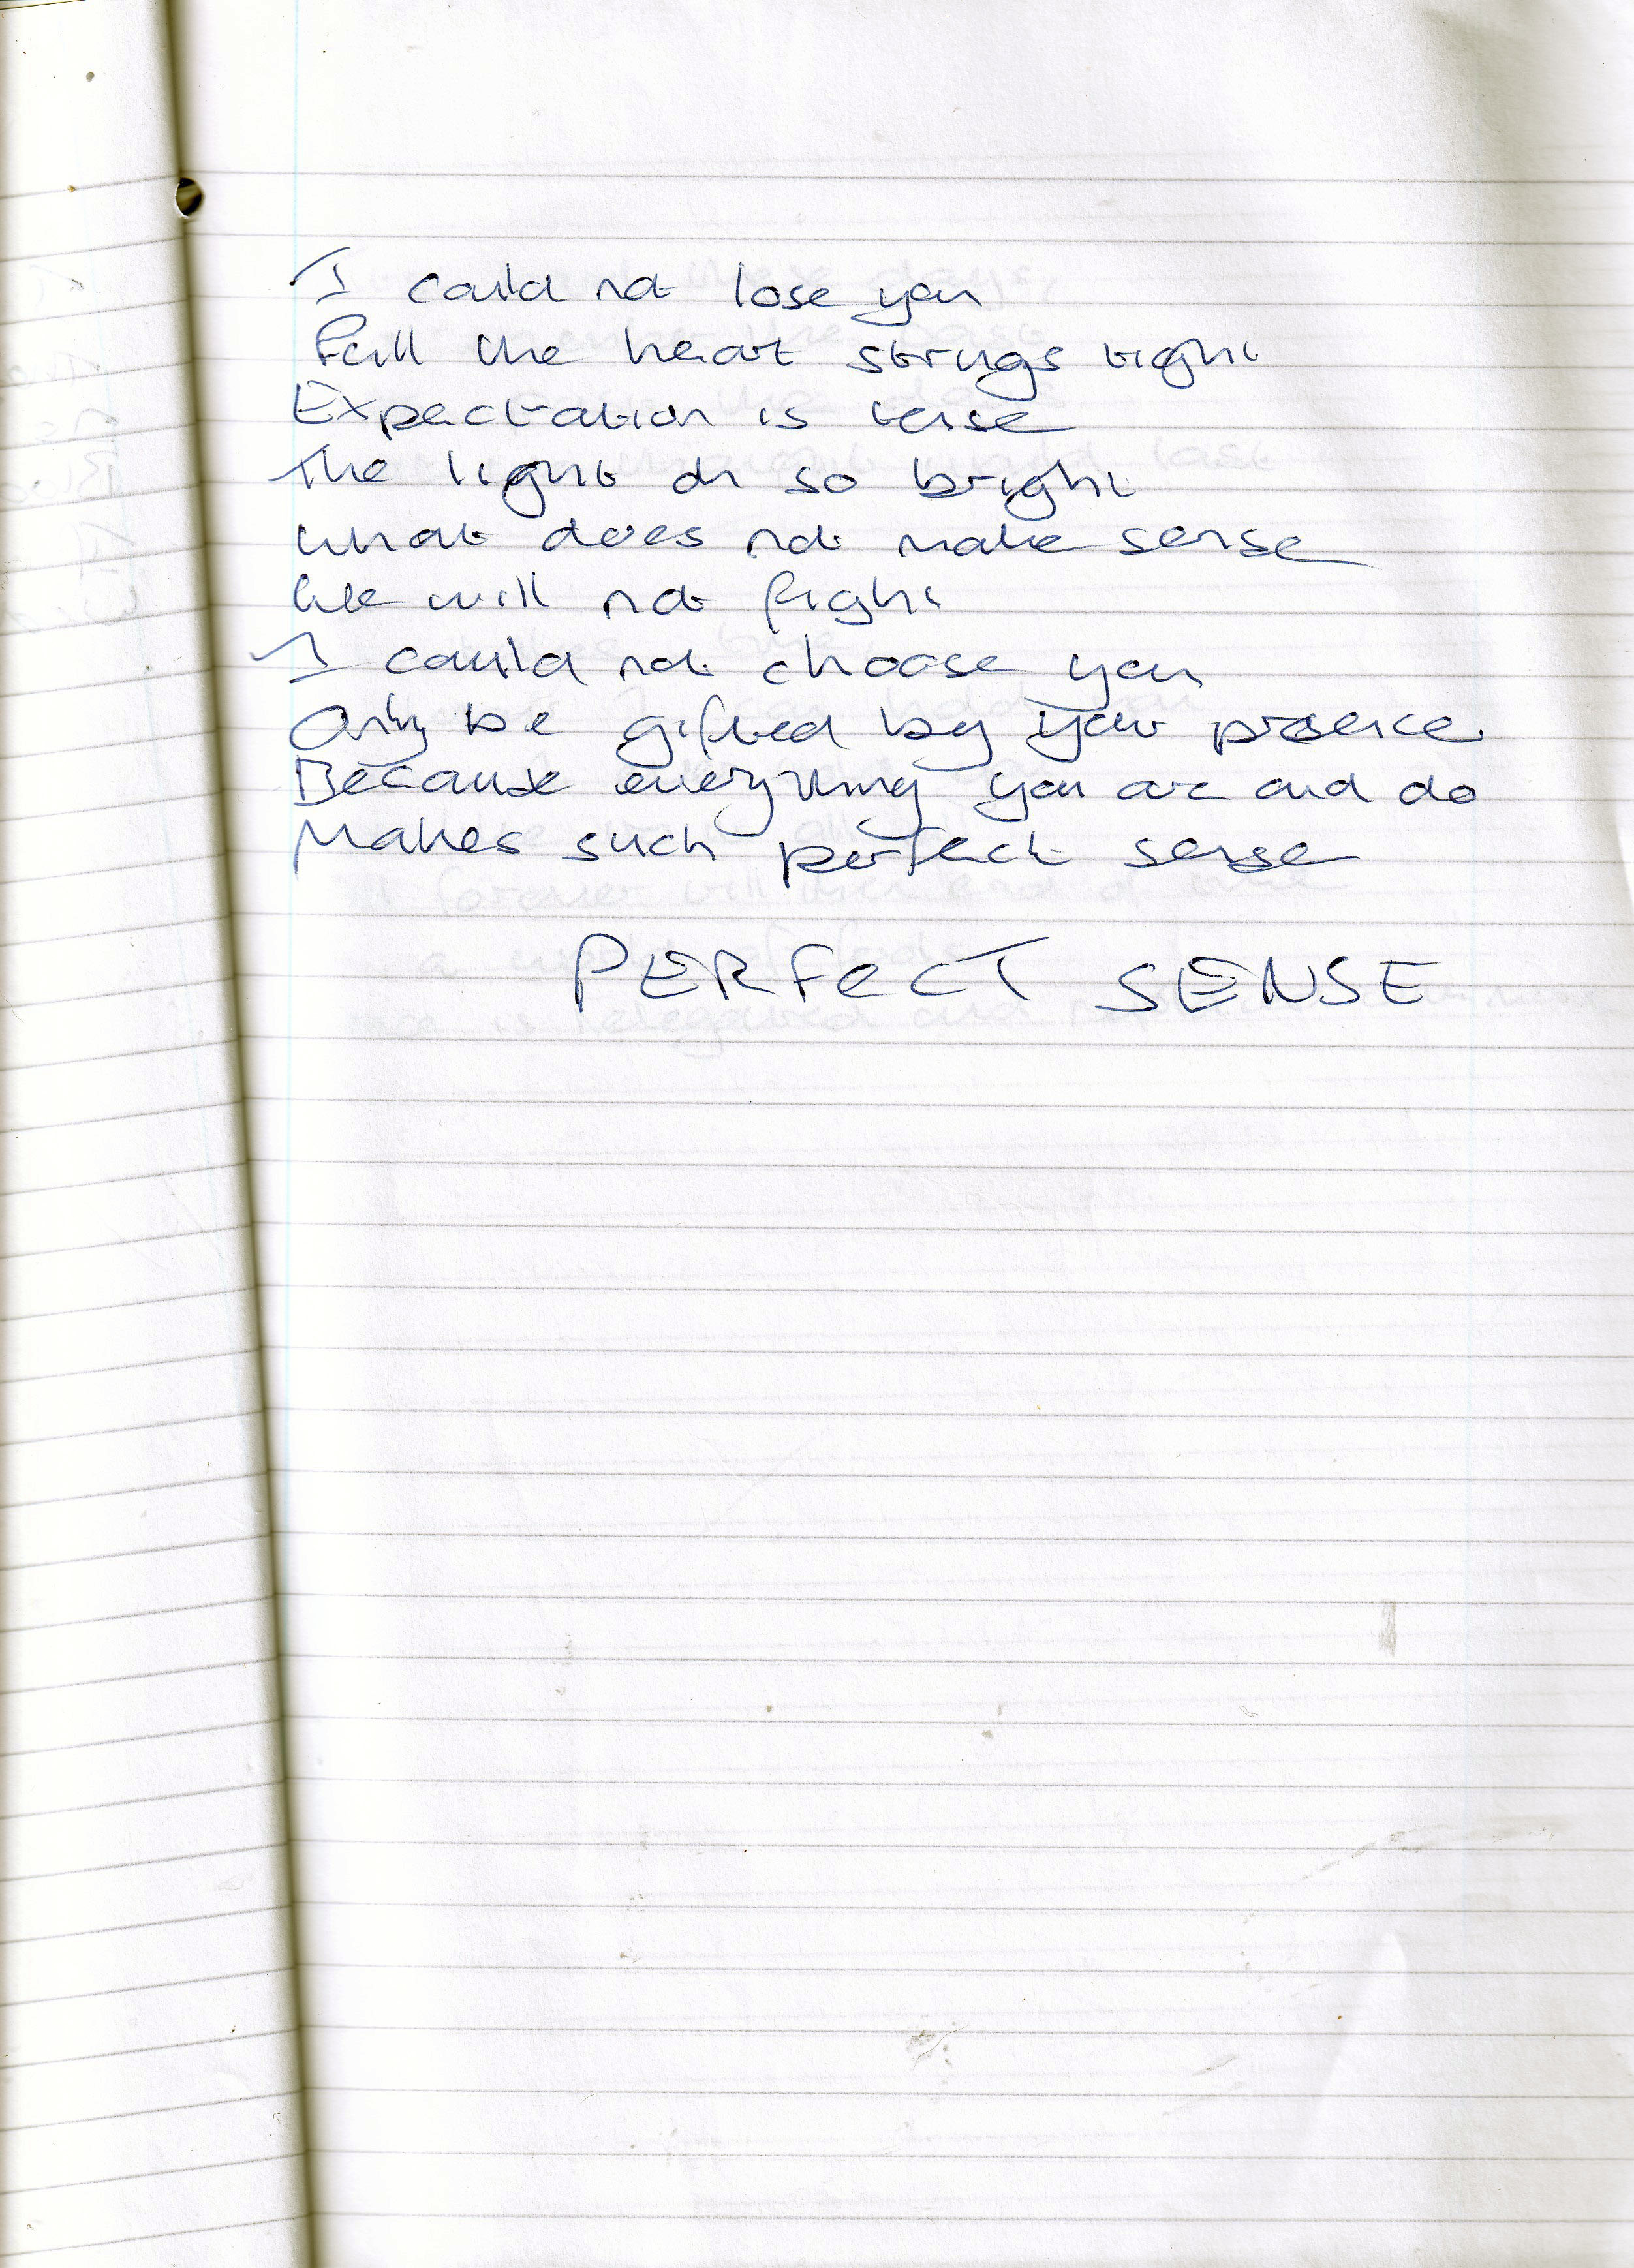 I could not lose you
Pull the heart strings tight
Expectation is tense
The light on so bright
What does not make sense
We will not fight
I could not choose you
Only be gifted by your presence
Because everything you are and do
Makes such perfect sense
PERFECT SENSE